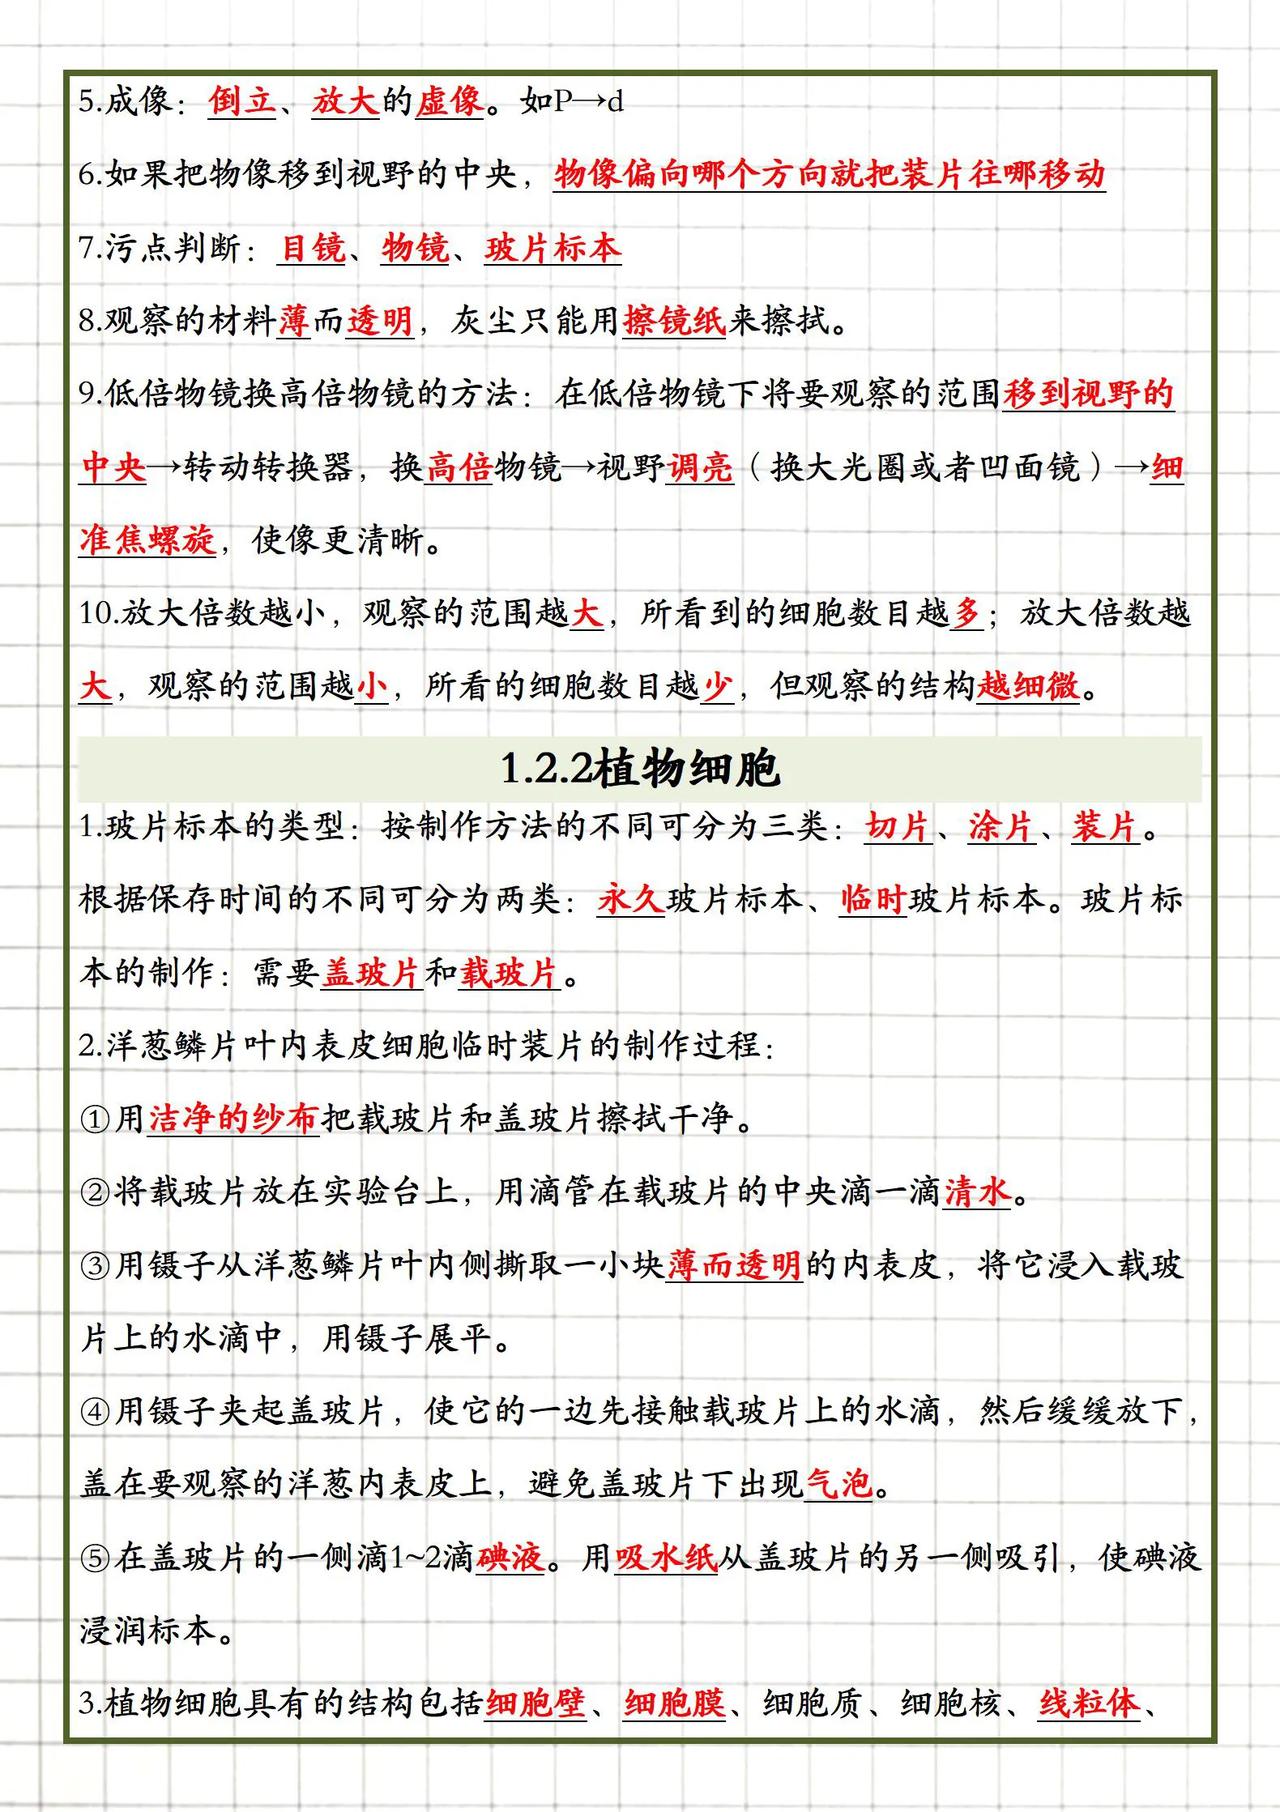 5.成像：倒立、放大的虚像。如P→d
6.如果把物像移到视野的中央，物像偏向哪个方向就把装片往哪移动
7.污点判断：目镜、物镜、玻片标本
8.观察的材料薄而透明，灰尘只能用擦镜纸来擦拭。
9.低倍物镜换高倍物镜的方法：在低倍物镜下将要观察的范围移到视野的
中央→转动转换器，换高倍物镜→视野调亮（换大光圈或者凹面镜）→细
准焦螺旋，使像更清晰。
10.放大倍数越小，观察的范围越大，所看到的细胞数目越多；放大倍数越
大，观察的范围越小，所看的细胞数目越少，但观察的结构越细微。
1.2.2植物细胞
1.玻片标本的类型：按制作方法的不同可分为三类：切片、涂片、装片。
根据保存时间的不同可分为两类：永久玻片标本、临时玻片标本。玻片标
本的制作：需要盖玻片和载玻片。
2.洋葱鳞片叶内表皮细胞临时装片的制作过程：
①用洁净的纱布把载玻片和盖玻片擦拭干净。
②将载玻片放在实验台上，用滴管在载玻片的中央滴一滴清水。
③用镊子从洋葱鳞片叶内侧撕取一小块薄而透明的内表皮，将它浸入载玻
片上的水滴中，用镊子展平。
④用镊子夹起盖玻片，使它的一边先接触载玻片上的水滴，然后缓缓放下，
盖在要观察的洋葱内表皮上，避免盖玻片下出现气泡。
⑤在盖玻片的一侧滴1~2滴碘液。用吸水纸从盖玻片的另一侧吸引，使碘液
浸润标本。
3.植物细胞具有的结构包括细胞壁、细胞膜、细胞质、细胞核、线粒体、